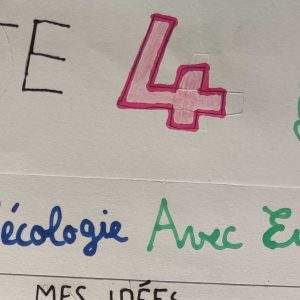 TE 4
écologie Avec
MES IDÉES